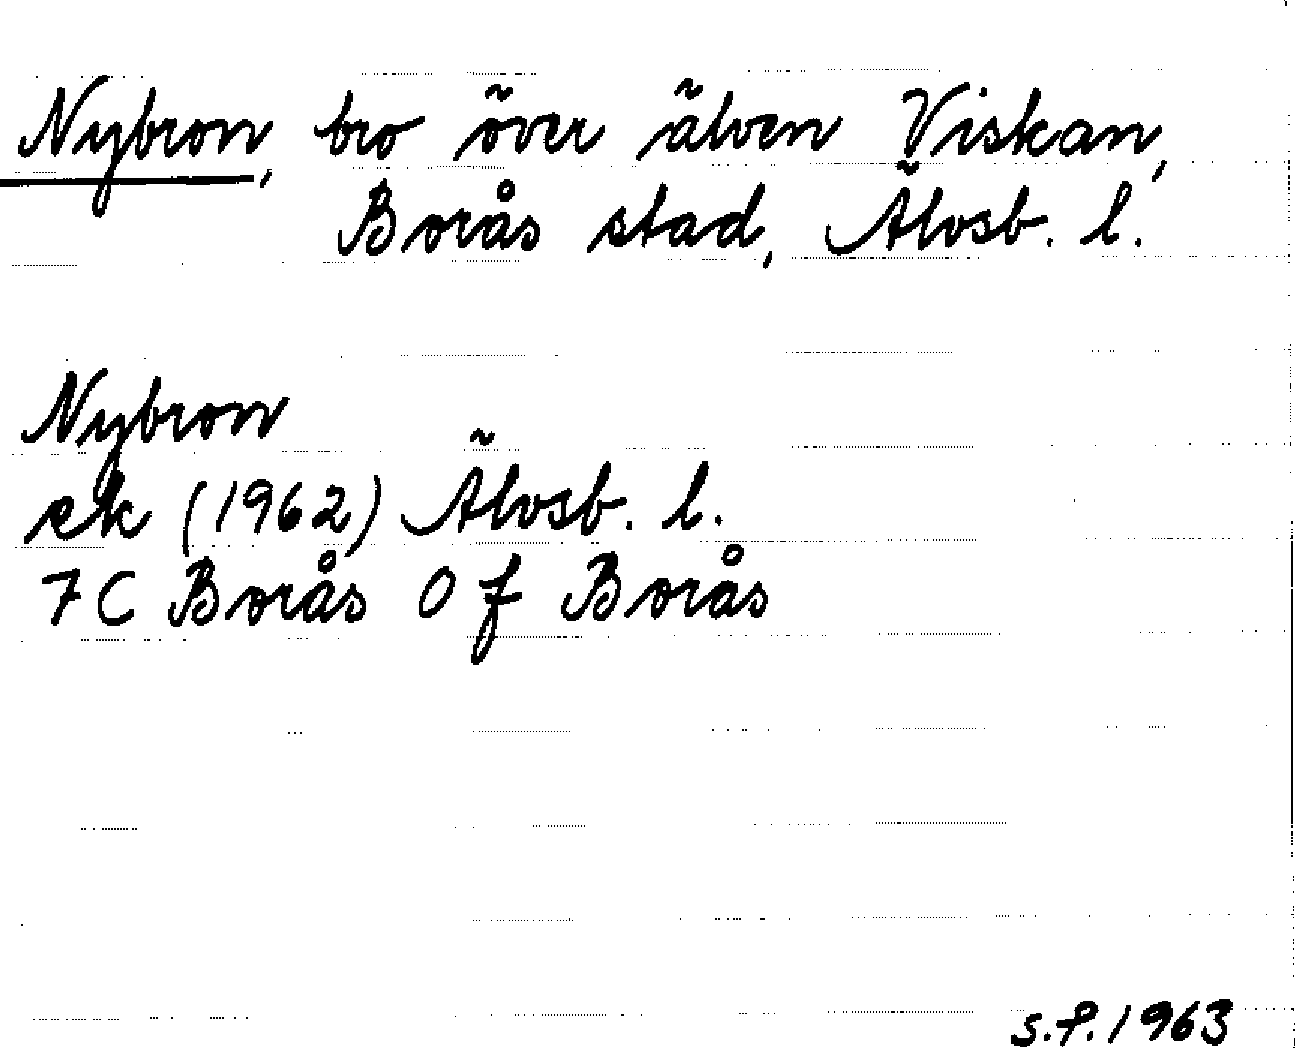 Nybron, bro över älven Viskan,
Borås stad, Älvsb. l.
Nybron
ek (1962) Älvsb. l.
7C Borås 0 f Borås
S.F. 1963